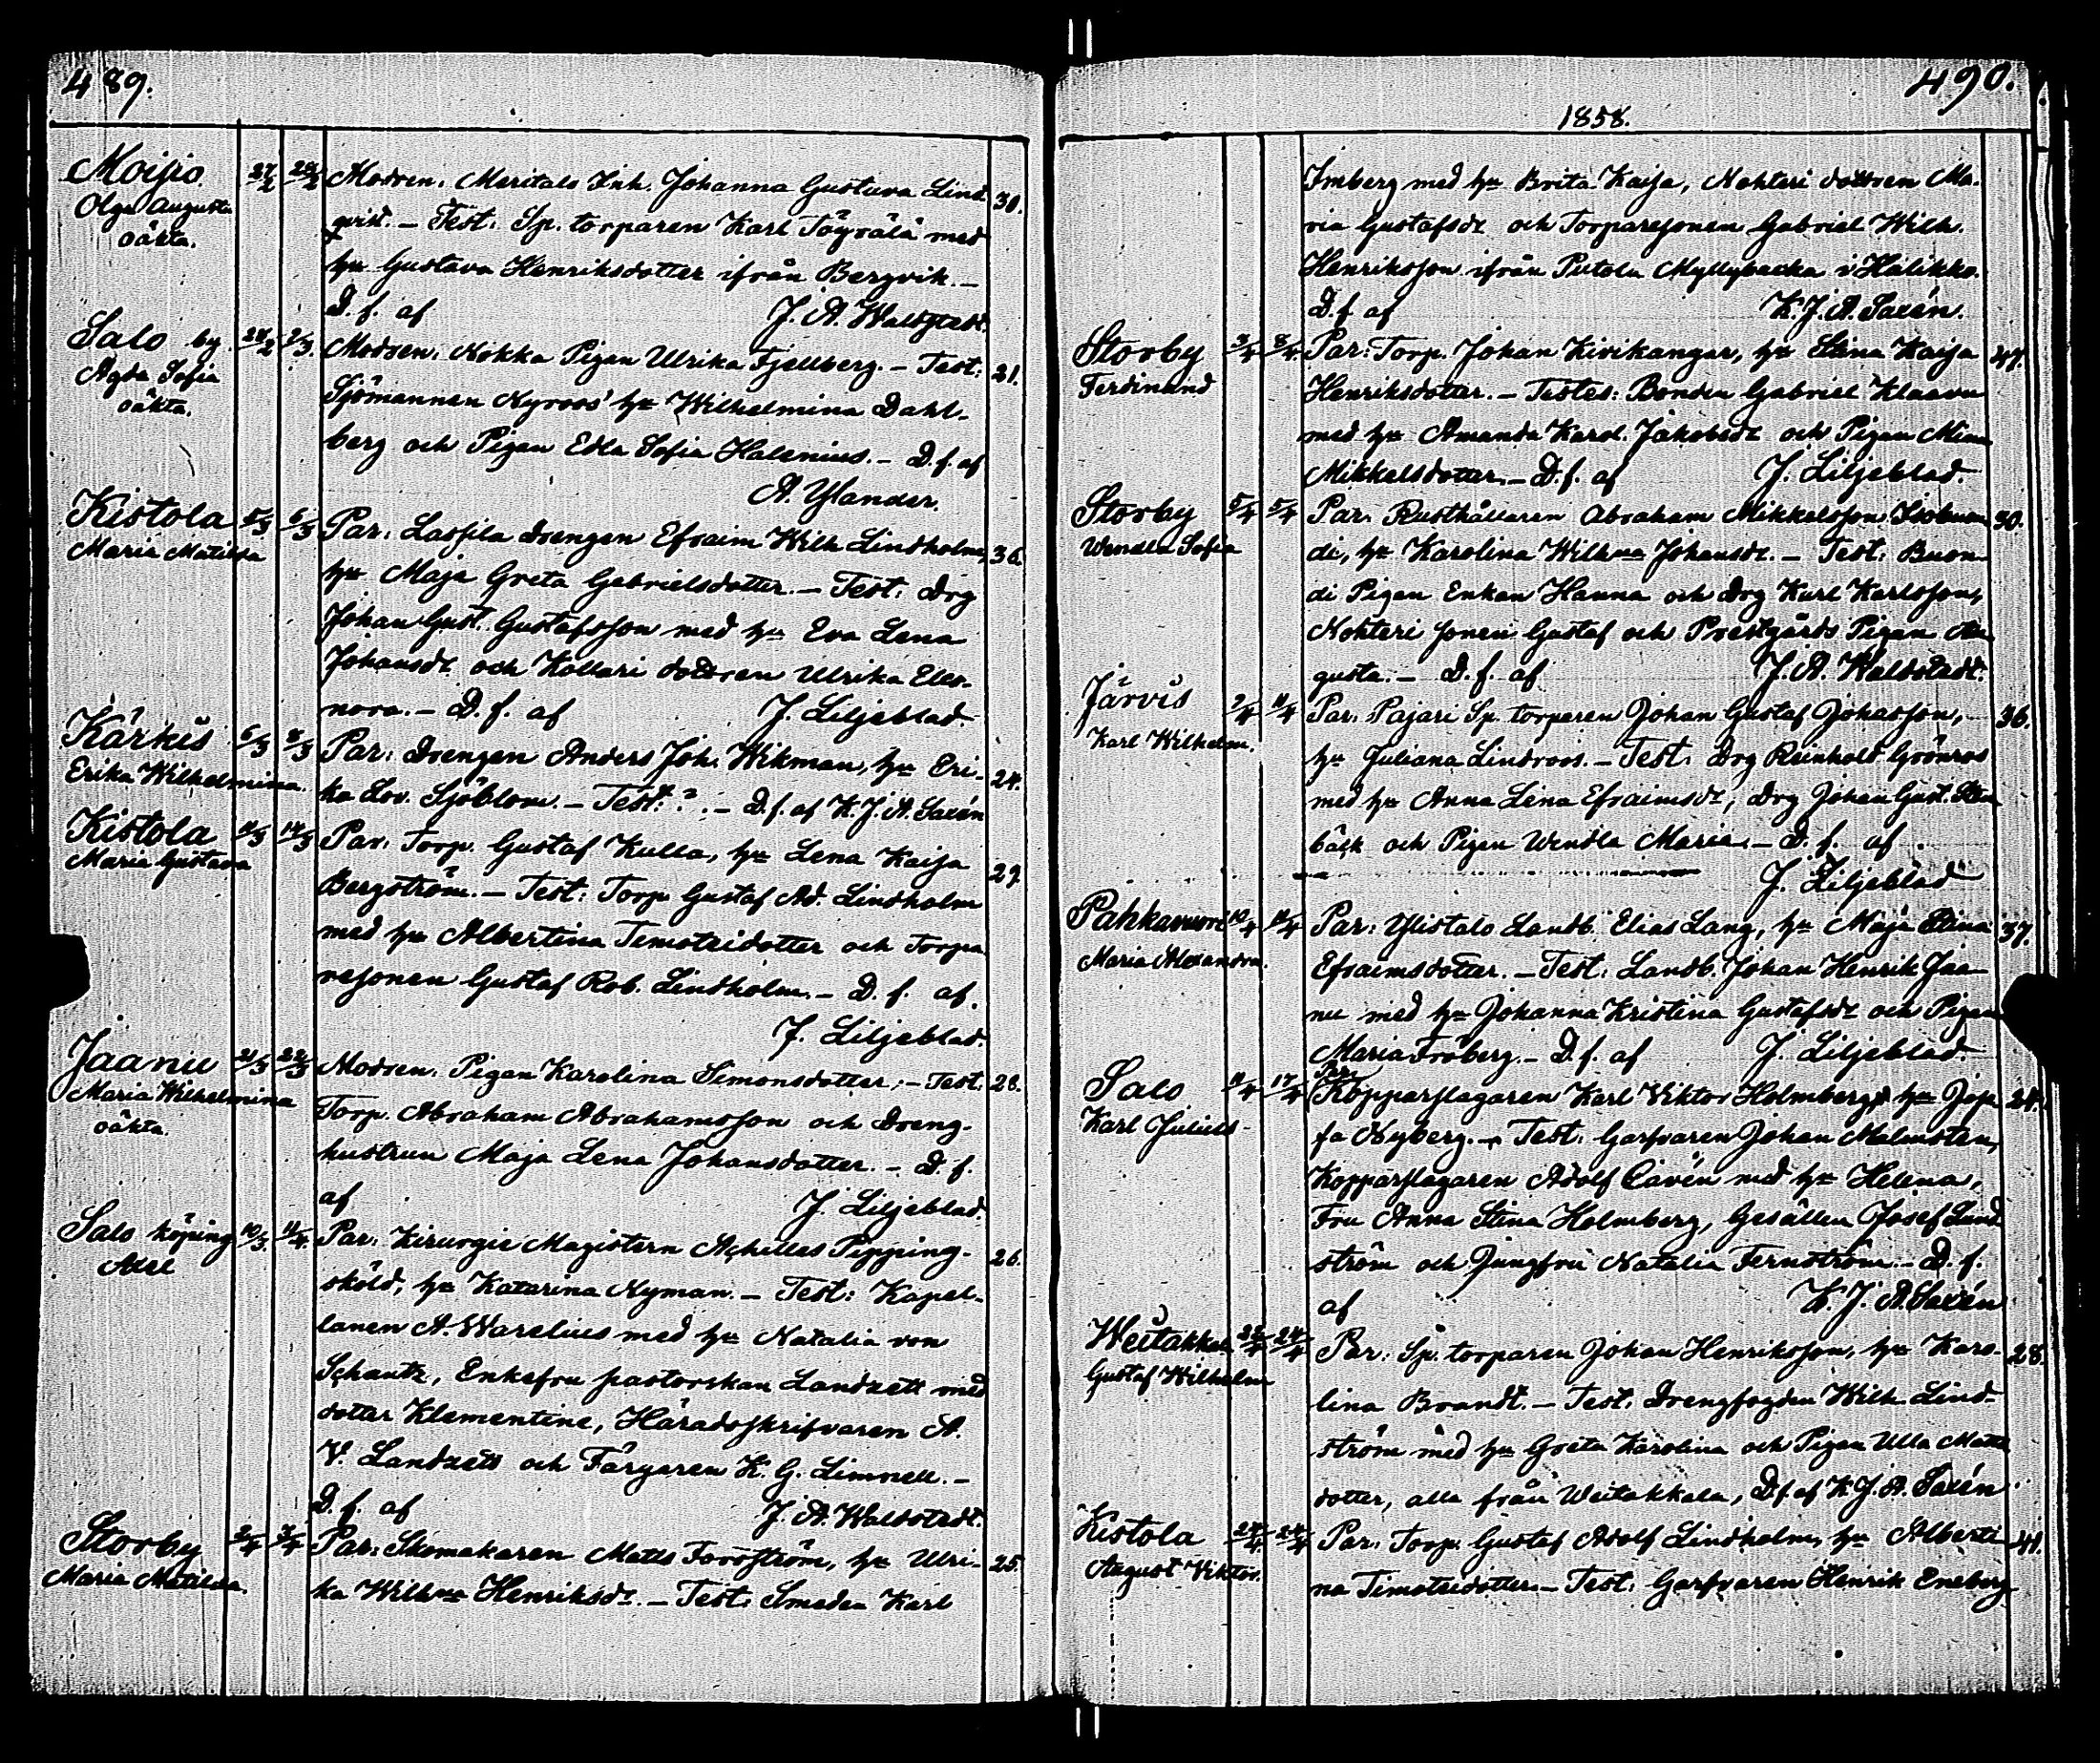 489.
Moisio 27/2 28/2 Modren: Meritalo Inh. Johanna Gustava Lind 30.
Olga Augusta qvist. – Test: Sp. torparen Karl Töyrälä med
oäkta. hu Gustava Henriksdotter ifrån Bergvik. –
D. f. af J. A. Waldstedt.
Salo by 28/2 2/3. Modren: Nokka Pigan Ulrika Fjellberg. – Test: 21.
Agda Sofia Sjömannen Nyroos' hu Wilhelmina Dahl-
oäkta. berg och Pigan Edla Sofia Halenius. – D. f. af
A. Ylander.
Kistola 5/3 6/3 Par: Lassila drengen Efraim Wilh Lindholm, 36.
Maria Matilda hu Maja Greta Gabrielsdotter. – Test: Drg
Johan Gust. Gustafsson med hu Eva Lena
Johansdr och Kollari dottren Ulrika Eleo-
nora. – D. f. af J. Liljeblad.
Kärkis 6/3 8/3 Par: Drengen Anders Joh. Wikman, hu Eri- 24.
Erika Wilhelmina. ka Lov. Sjöblom. – Test: ? – D. f. af K. J. A. Saxén
Kistola 11/3 14/3 Par: Torp. Gustaf Kulla, hu Lena Kaisa 29.
Maria Gustava Bergström. – Test: Torp. Gustaf Ad. Lindholm
med hu Albertina Timoteidotter och Torpa
resonen Gustaf Rob. Lindholm. – D. f. af.
J. Liljeblad.
Jaanu 21/3 22/3 Modren: Pigan Karolina Simonsdotter; – Test. 28.
Maria Wilhelmina Torp. Abraham Abrahamsson och Dreng-
oäkta. hustrun Maja Lena Johansdotter. – D. f.
af J. Liljeblad.
Salo köping 10/3. 11/4. Par: Kirurgie Magistern Achilles Pipping- 26.
Axel sköld, hu Katarina Nyman. – Test: Kapel-
lanen A. Warelius med hu Natalia von
Schantz, Enkefru pastorskan Landzett med
dotter Klementine, Häradsskrifvaren A.
V. Landzett och Färgaren K. G. Limnell. –
D. f. af J. A. Waldstedt.
Storby 2/4 3/4 Par: Skomakaren Matts Forsström, hu Ulri- 25.
Maria Matilda. ka Wilhma Henriksdr. – Test: Smeden Karl
490.
1858.
Imberg med hu Brita Kaisa, Nohteri dottren Ma-
ria Gustafsdr och Torparesonen Gabriel Wilh.
Henriksson ifrån Putola Myllybacka i Halikko.
D. f. af K. J. A. Saxén.
Storby 3/4 3/4 Par: Torp. Johan Kivikangar, hu Stina Kaisa 47.
Ferdinand Henriksdotter. – Testes: Bonden Gabriel Klaavu
med hu Amanda Karol. Jakobsdr och Pigan Mina
Mikkelsdotter. – D. f. af J. Liljeblad.
Storby 5/4 5/4 Par: Rusthållaren Abraham Mikkelsson 30.
Wendla Sofia di, hu Karolina Wilhma Johansdr. – Test: Buon-
di Pigan Enkan Hanna och Drg Karl Karlsson,
Nohteri sonen Gustaf och Prestgårds Pigan Au
gusta. – D. f. af J. A. Waldstedt.
Järvis 2/4 11/4 Par: Pajari Sp. torparen Johan Gustaf Johasson, 36.
Karl Wilhelm. hu Juliana Lindroos. – Test: Drg Reinhold Grönroos
med hu Anna Lena Efraimsdr, Drg Johan Gust. Sten
bäck och Pigan Wendla Maria. – D. f. af
J. Liljeblad
Pahkavuori 10/4 11/4 Par: Ylistalo Landb. Elias Lang, hu Maja Stina 37.
Maria Alexandra. Efraimsdotter. – Test: Landb. Johan Henrik Jaa-
nu med hu Johanna Kristina Gustafsdr och Pigan
Maria Froberg. – D. f. af J. Liljeblad.
Salo 11/4 17/4 Par: Kopparslagaren Karl Viktor Holmberg, hu Jose 28.
Karl Julius fa Nyberg. – Test: Garfvaren Johan Malmsten,
Kopparslagaren Adolf Cavén med hu Helena,
Fru Anna Stina Holmberg, Gesällen Josef Lund
ström och Jungfru Natalia Fernström. – D. f.
af K. J. A. Saxén
Weitakkala 22/4 24/4 Par: Sp. torparen Johan Henriksson, hu Karo- 28.
Gustaf Wilhelm lina Brandt. – Test: Drengfogden Wilh. Lind-
ström med hu Greta Karolina och Pigan Ulla Matts
dotter, alla från Weitakkala, D. f. af K. J. A. Saxén
Kistola 24/4 24/4 Par: Torp. Gustaf Adolf Lindholm, hu Alberti 41.
August Viktor. na Timoteidotter. – Test: Garfvaren Henrik Eneberg